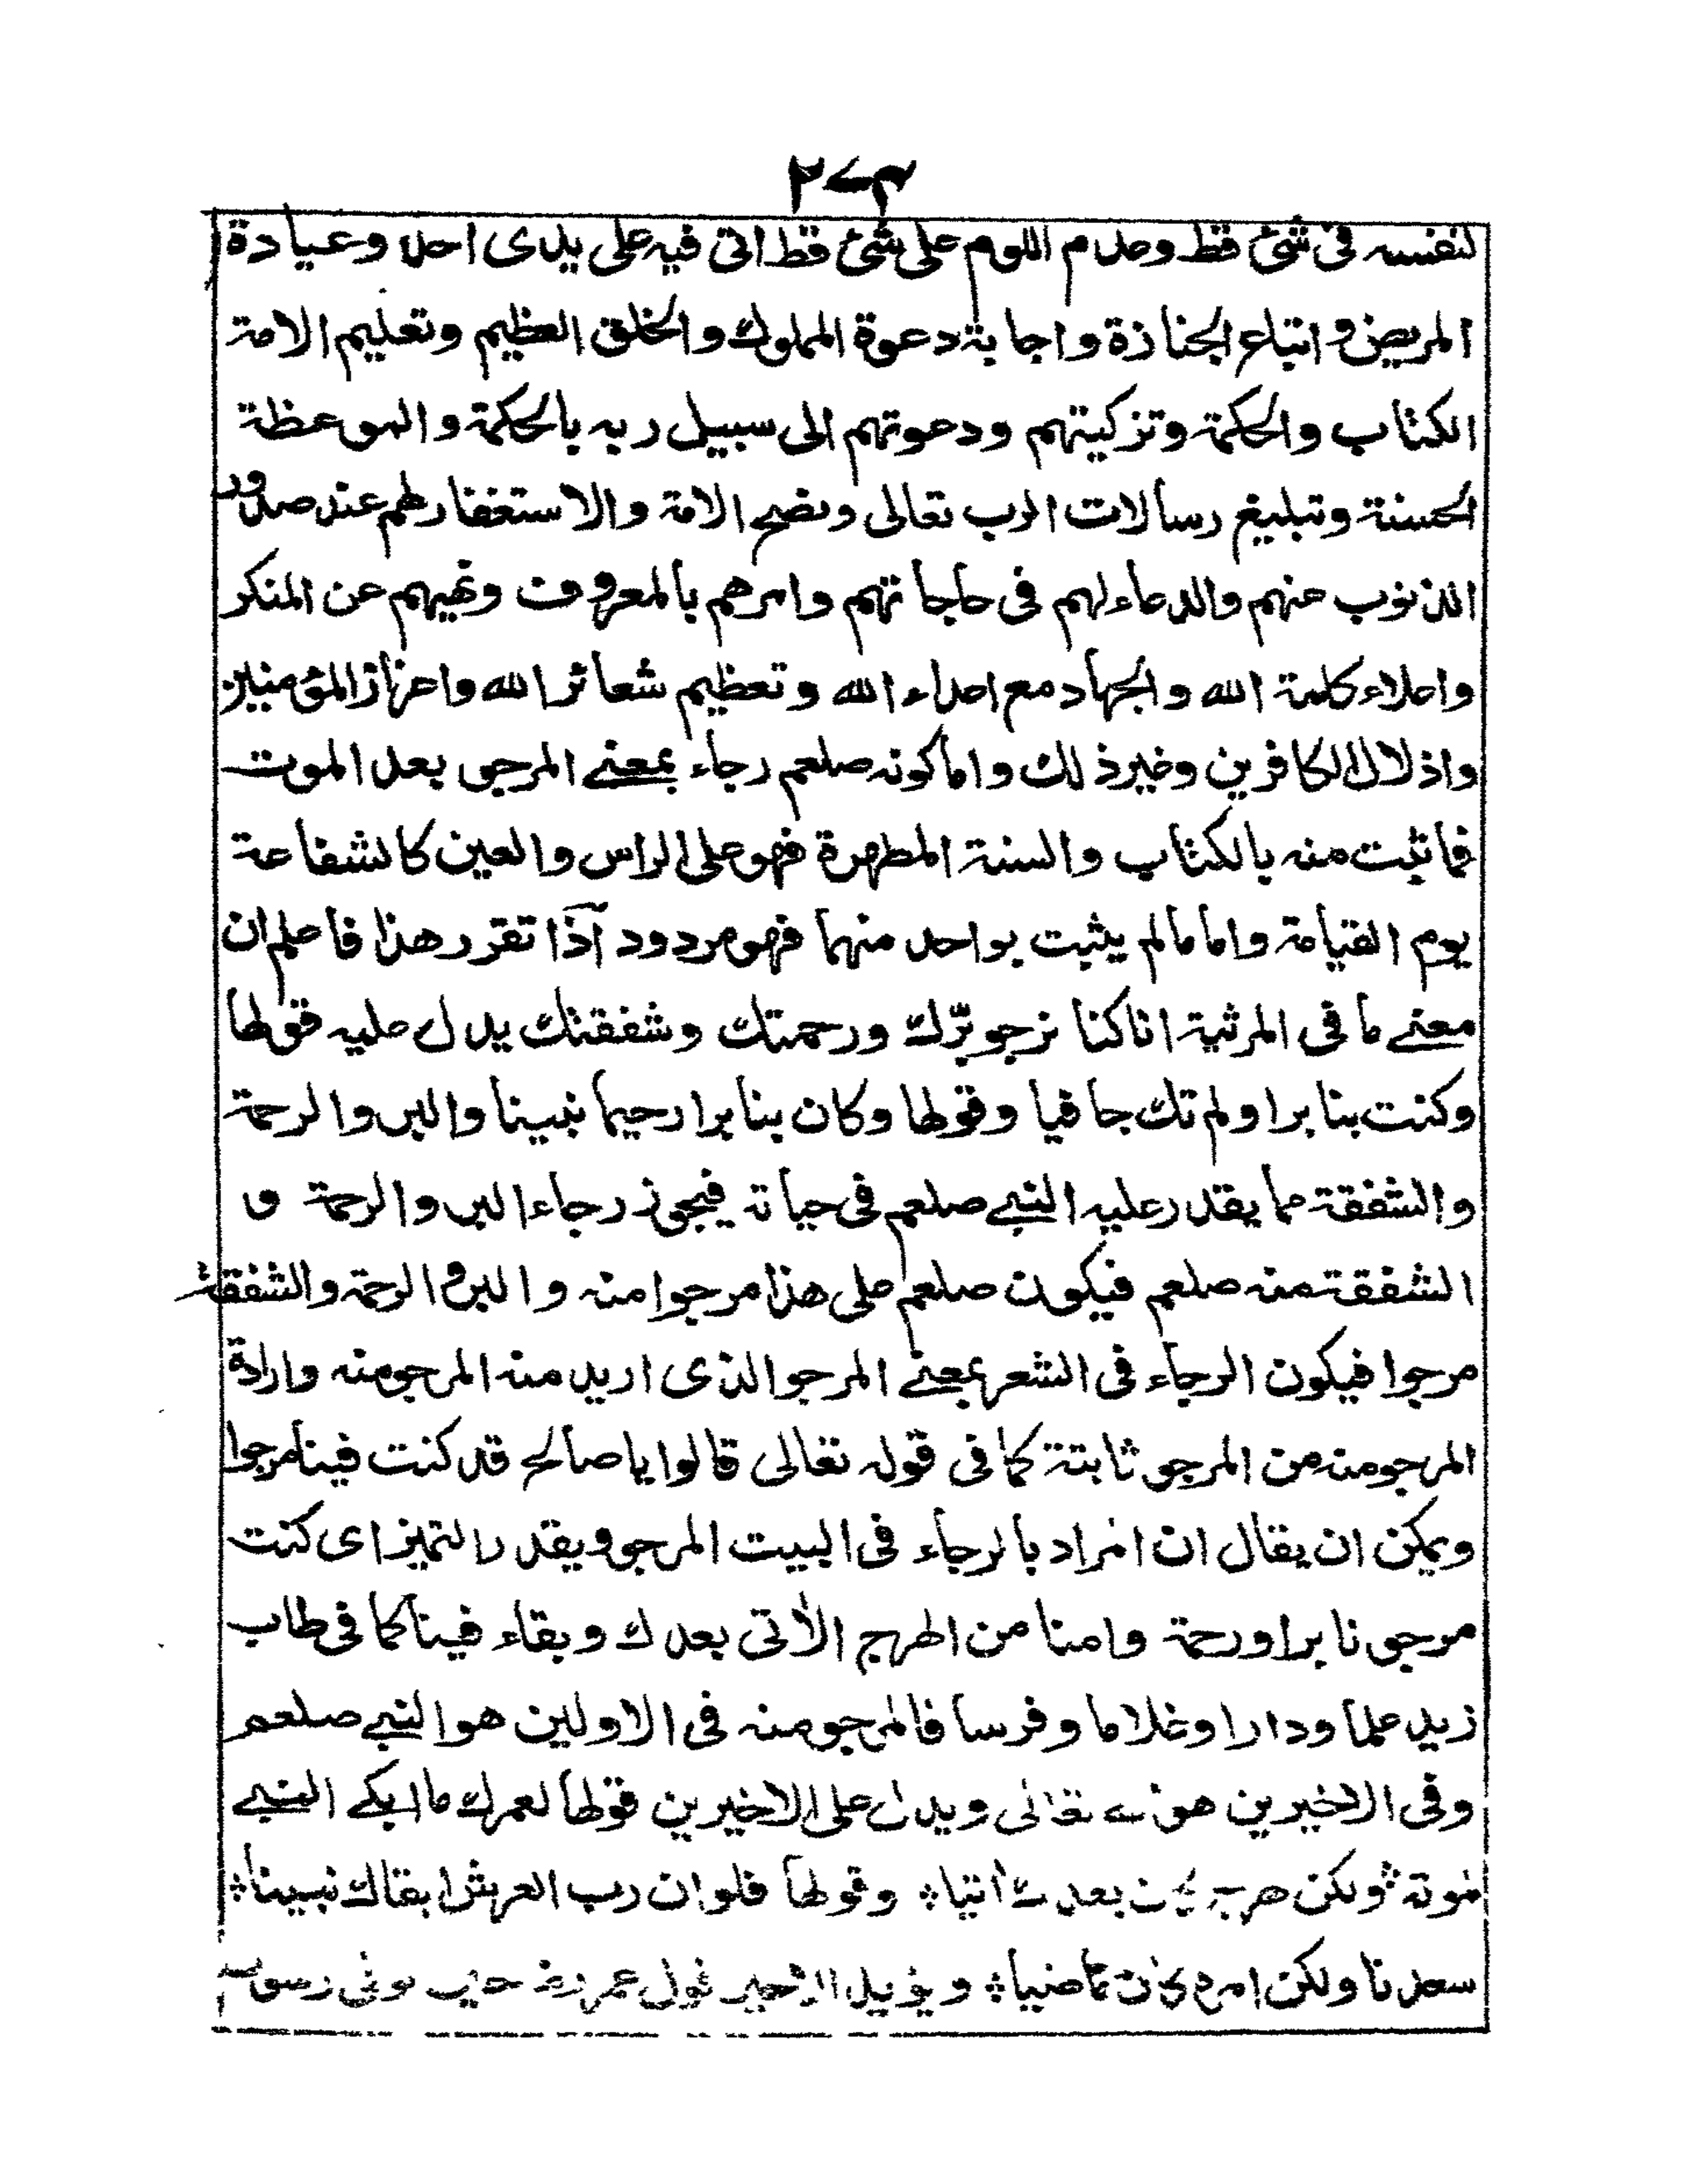 ٢٧٣
لنفسه فى شئ قط وعدم اللوم على شئ قط اتى فيه على يدى احد وعيادة
المريض واتباع الجنازة واجابة دعوة المملوك والخلق العظيم وتعليم الامة
الكتاب والحكمة وتزكيتهم ودعوتهم الى سبيل ربه بالحكمة والموعظة
الحسنة وتبليغ رسالات الرب تعالى ونصح الامة والاستغفار لهم عند صدور
الذنوب عنهم والدعاء لهم فى حاجاتهم وامرهم بالمعروف ونهيهم عن المنكر
واعلاء كلمة الله والجهاد مع اعداء الله وتعظيم شعائر الله واعزاز المؤمنين
واذلال الكافرين وغير ذلك واما كونه صلعم رجاء بمعنے المرجى بعد الموت
فما ثبت منه بالكتاب والسنة المطهرة فهو على الراس والعين كالشفاعة
يوم القيامة واما مالم يثبت بواحد منهما فهو مردود اذا تقرر هذا فاعلم ان
معنے ما فى المرثية انا كنا نرجو برّك ورحمتك وشفقتك يدل عليه قولها
وكنت بنا برا ولم تك جافيا وقولها وكان بنا برا رحيما نبينا والبر والرحمة
والشفقة مما يقدر عليه النبے صلعم فى حياته فيجوز رجاء البر والرحمة و
الشفقة منه صلعم فيكون صلعم على هذا مرجوا منه والبر والرحمة والشفقة
مرجوا فيكون الرجاء فى الشعر بمعنے المرجو الذى اريد منه المرجومنه وارادة
المرجومنه من المرجو ثابتة كما فى قوله تعالى قالوا يا صالح قد كنت فينا مرجوا
ويمكن ان يقال ان المراد بالرجاء فى البيت المرجو ويقدر التميز اى كنت
مرجونا برا ورحمة وامنا من الهرج الأتى بعدك وبقاء فينا كما فى طاب
زيد علما ودارا وغلاما وفرسا فالمرجومنه فى الاولين هو النبے صلعم
وفى الاخيرين هو تعالى ويدل على الاخيرين قولها لعمرك ما ابكے النبے
لموته ولكن هرج بعدك اتيا وقولها فلو ان رب العرش ابقاك نبينا
سعدنا ولكن امره كان ماضيا ويؤيد الاخير قول عمر رضـ حين توفى رسول